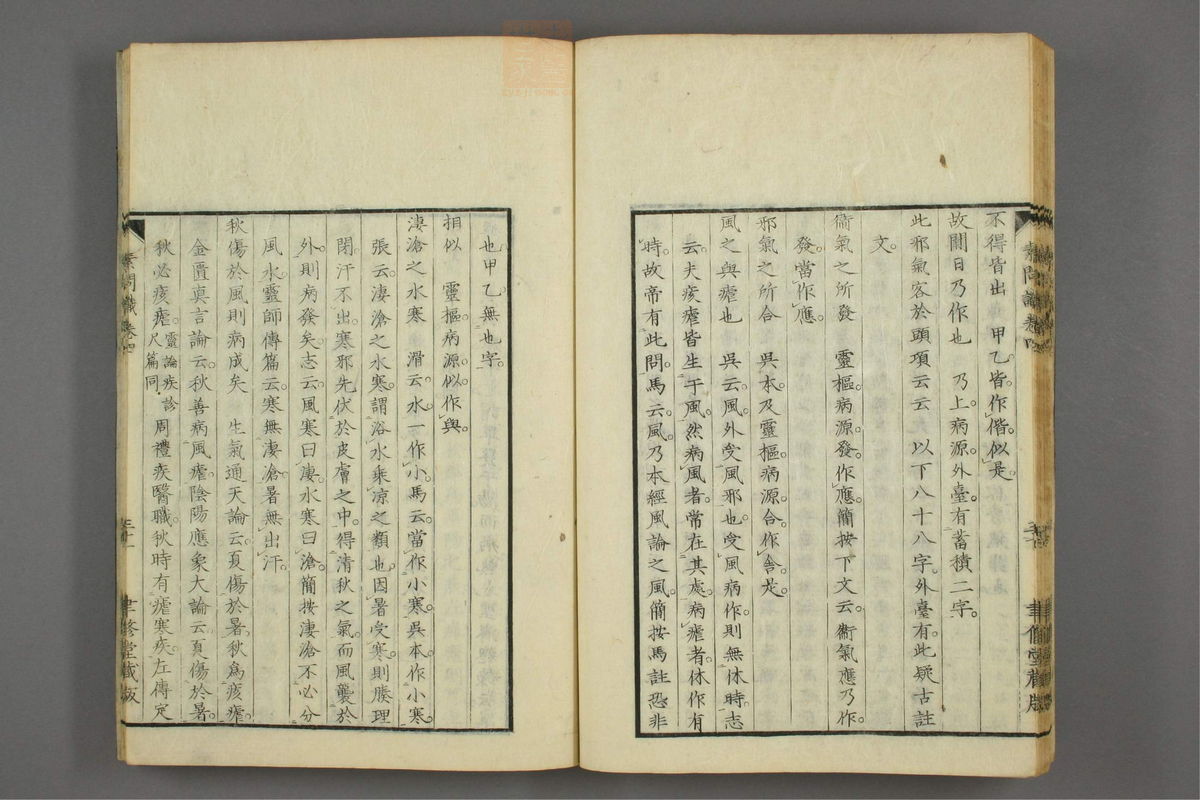 不得皆出　甲乙皆作偕似是
故間日乃作也　乃上病源外臺有蓄積二字
此邪氣客於頭項云云　以下八十八字外臺有此疑古註
文
衞氣之所發　靈樞病源發作應簡按下文云衞氣應乃作
發當作應
邪氣之所合　吳本及靈樞病源合作舍是
風之與瘧也　吳云風外受風邪也受風病作則無休時志
云夫痎瘧皆生于風然病風者常在其處病瘧者休作有
時故帝有此問馬云風乃本經風論之風簡按馬註恐非
素問識卷四
聿修堂藏版
也甲乙無也字
相似　靈樞病源似作與
淒滄之水寒　滑云水一作小馬云當作小寒吳本作小寒
張云淒滄之水寒謂浴水乘凉之類也因暑受寒則腠理
閉汗不出寒邪先伏於皮膚之中得清秋之氣而風襲於
外則病發矣志云風寒曰淒水寒曰滄簡按淒滄不必分
風水靈師傳篇云寒無淒滄暑無出汗
秋傷於風則病成矣　生氣通天論云夏傷於暑秋爲痎瘧
金匱真言論云秋善病風瘧陰陽應象大論云夏傷於暑
秋必痎瘧靈論疾診尺篇同周禮疾醫職秋時有瘧寒疾左傳定
素問識卷四
三十一
聿修堂藏版